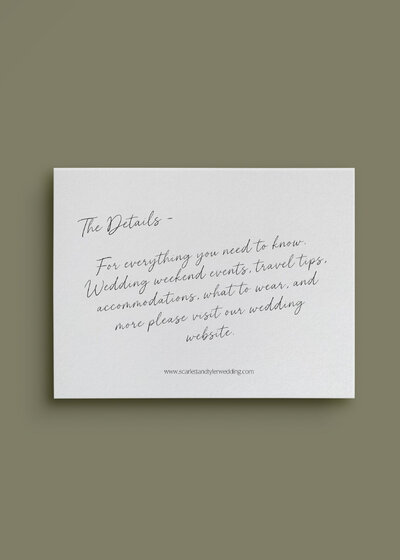 The Details -
For everything you need to know.
Wedding weekend events, travel tips,
accommodations, what to wear, and
more please visit our wedding
website.
www.scarlettandtylerwedding.com